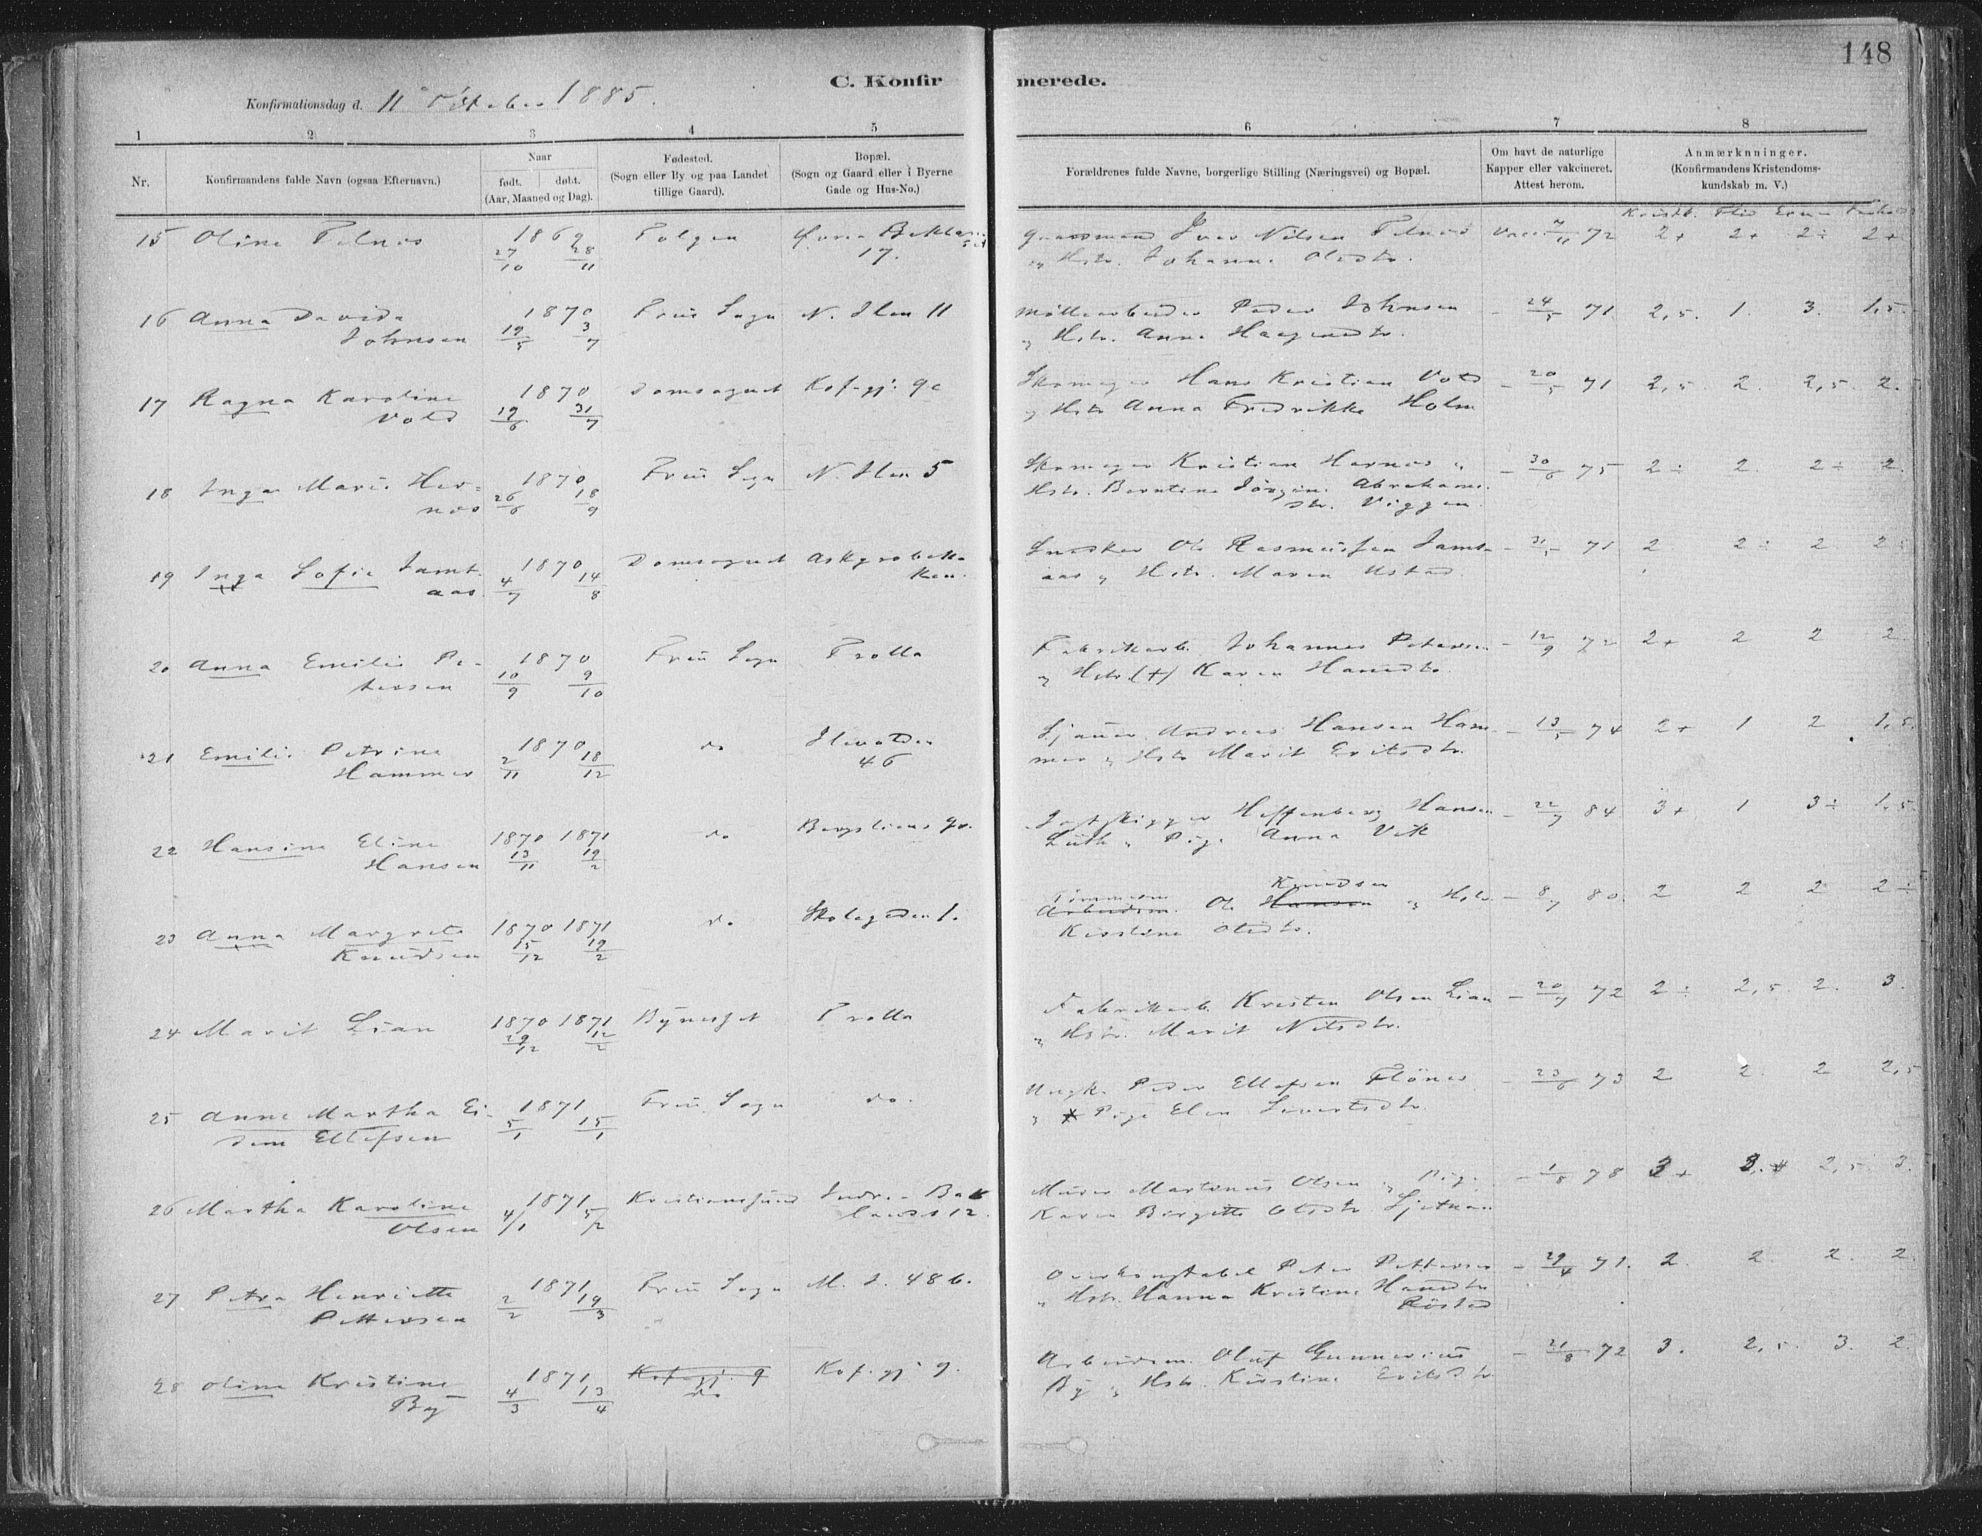 148
C. Konfirmerede.
Konfirmationsdag d. 11 Oktober 1885.
1 2 3 4 5 6 7 8
Nr.
Konfirmandens fulde Navn (ogsaa Efternavn.)
Naar
født. døbt.
(Aar, Maaned og Dag).
Fødested.
(Sogn eller By og paa Landet
tillige Gaard).
Bopæl.
(Sogn og Gaard eller i Byerne
Gade og Hus-No.)
Forældrenes fulde Navne, borgerlige Stilling (Næringsvei) og Bopæl.
Om havt de naturlige
Kopper eller vakcineret.
Attest herom.
Anmærkninger.
(Konfirmandens Kristendoms-
kundskab m. V.)
Kristk. Flid
15 Oline 1869 27/10 28/11
17.
Iver Nilsen
Hstr. Johanna Olsdtr.
72 2+ 2+ 2÷ 2+
16 Anna Davida 1870 Frue Sogn N. Ilen 11
Johnsen 19/5 3/7
Møllearbeider Peder Johnsen
Hstr. Anne
24/5 71 2,5. 1. 3. 1,5.
17 Ragna Karoline 1870 Domsognet Kof-gj. 9c
Vold 19/6 31/7
Skomager Hans Kristian Vold
Hstr Anna Fredrikke Holm
20/5 71 2,5. 2. 2,5. 2.
18 Inga Marie Her- 1870 Frue Sogn N. Ilen 5
nes 26/6 18/9
Skomager Kristian Hernes
Hstr. Berntine Jörgine Abrahams-
dtr. Viggen
30/6 75 2÷ 2. 2÷ 2.
19 Inga Sofie Jamt- 1870 Domsognet
aas. 4/7 14/8
Snedker Ole Rasmussen Jamt-
aas Hstr. Maren Ustad
71 2 2÷ 2
20 Anna Emilie Pe- 1870 Frue Sogn Trolla
tersen 10/9 9/10
Fabrikarb. Johannes Petersen
Hstr. (+) Karen Hansdtr.
12/9 72 2+ 2 2 2.
21 Emilie Petrine 1870 do Ilevolden
Hammer 2/11 18/12 46
Sjauer Andreas Hansen Ham-
mer Hstr Marit Eriksdtr.
13/5 74 2+ 1 2 1,5.
22 Hansine Eline 1870 1871 do
Hansen 13/11 19/2
Hansen
Pige Anna
22/7 84 3+ 1 3÷ 1,5
23 Anna Margrete 1870 1871 do Skolegaden 1.
Knudsen 15/12 19/2
Arbeidsm. Ole Hansen Knudsen Hstr.
Olsdtr.
8/7 80. 2 2 2 2÷
24 Marit Lian 1870 1871 Bynesset Trolla
29/12 12/2
Fabrikarb. Kristen Olsen Lian
Hstr. Marit Nilsdtr.
20/7 72 2÷ 2,5. 2. 3.
25 Anne Martha Ei- 1871 Frue Sogn do.
dem Ellefsen 5/1 15/1
Ungk. Peder Ellefsen Flönes
Pige Elen Sivertsdtr.
23/6 73 2 2. 2 2,5
26 Martha Karoline 1871 Kristiansund Indre Bak-
Olsen 4/1 5/2 landet 12.
Murer Martinus Olsen Pige
Karen Birgitte Olsdtr
1/8 78 3+ 3. 2,5. 3.
27 Petra Henriette 1871 Frue Sogn M. I. 48 b.
Pettersen 2/2 19/3
Overkonstabel Peter Pettersen
Hstr. Hanna Kristine Hansdtr
Röstad
29/4 71. 2. 2. 2. 2.
28 Oline Kristine 1871 Kof-gj. 9 Kof-gj. 9.
By 4/3 13/4 do
Arbeidsm. Oluf Gunnerius
By Hstr. Kirstine Eriksdtr
21/8 72 3. 2,5. 3. 2